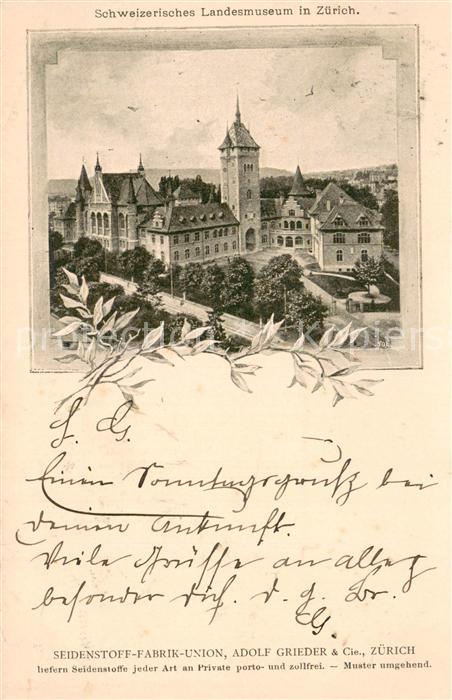 Schweizerisches Landesmuseum in Zürich.
L. G.
Einen Sonntagsgruß bei
deiner Ankunft.
Viele Grüsse an alle,
besonder dich. d. g. Br.
G.
SEIDENSTOFF-FABRIK-UNION, ADOLF GRIEDER & Cie., ZÜRICH
liefern Seidenstoffe jeder Art an Private porto- und zollfrei. — Muster umgehend.